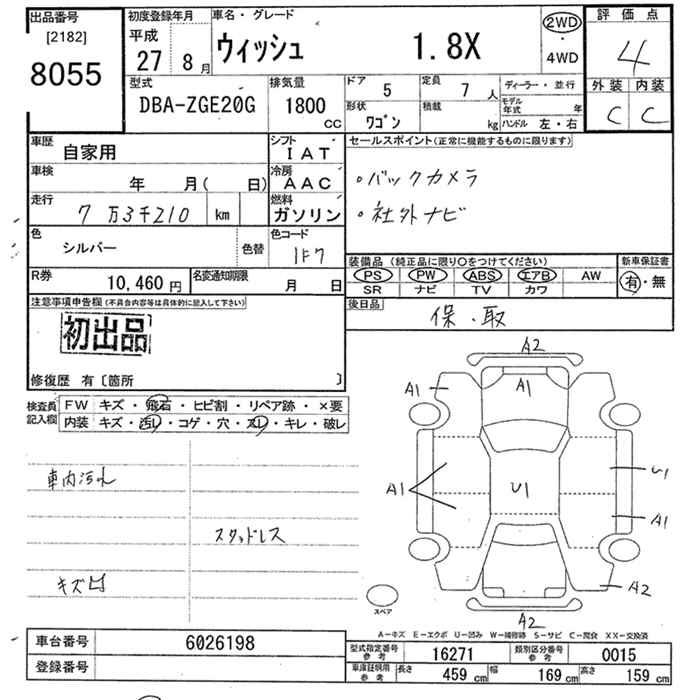 出品番号
[2182]
8055
初度登録年月
平成
27 8月
車名・グレード
ウィッシュ 1.8X
2WD
・
4WD
評価点
4
外装 内装
C C
型式
DBA-ZGE20G
排気量
1800
CC
ドア 5
定員 7 人
形状 ワゴン
積載 kg
ディーラー・並行
モデル年式 年
ハンドル 左・右
車歴
自家用
シフト
IAT
車検
年 月( 日)
冷房
AAC
走行
7万3千210 km
燃料
ガソリン
色
シルバー
色替
色コード
1F7
R券
10,460 円
名変通知期限
月 日
セールスポイント(正常に機能するものに限ります)
・バックカメラ
・社外ナビ
装備品(純正品に限り○をつけてください)
PS PW ABS エアB AW
SR ナビ TV カワ
新車保証書
有・無
後日品
保・取
注意事項申告欄(不具合内容等は具体的に記入して下さい)
初出品
修復歴 有〔箇所 〕
検査員記入欄
FW キズ・飛石・ヒビ割・リペア跡・×要
内装 キズ・汚レ・コゲ・穴・スレ・キレ・破レ
車内汚れ
スタッドレス
キズ凹
A2
A1
A1
A1
U1
U1
A1
A2
A2
スペア
A-キズ E-エクボ U-凹み W-補修跡 S-サビ C-腐食 XX-交換済
車台番号 6026198
登録番号
型式指定番号参考 16271
類別区分番号参考 0015
車庫証明用参考 長さ 459 cm 幅 169 cm 高さ 159 cm